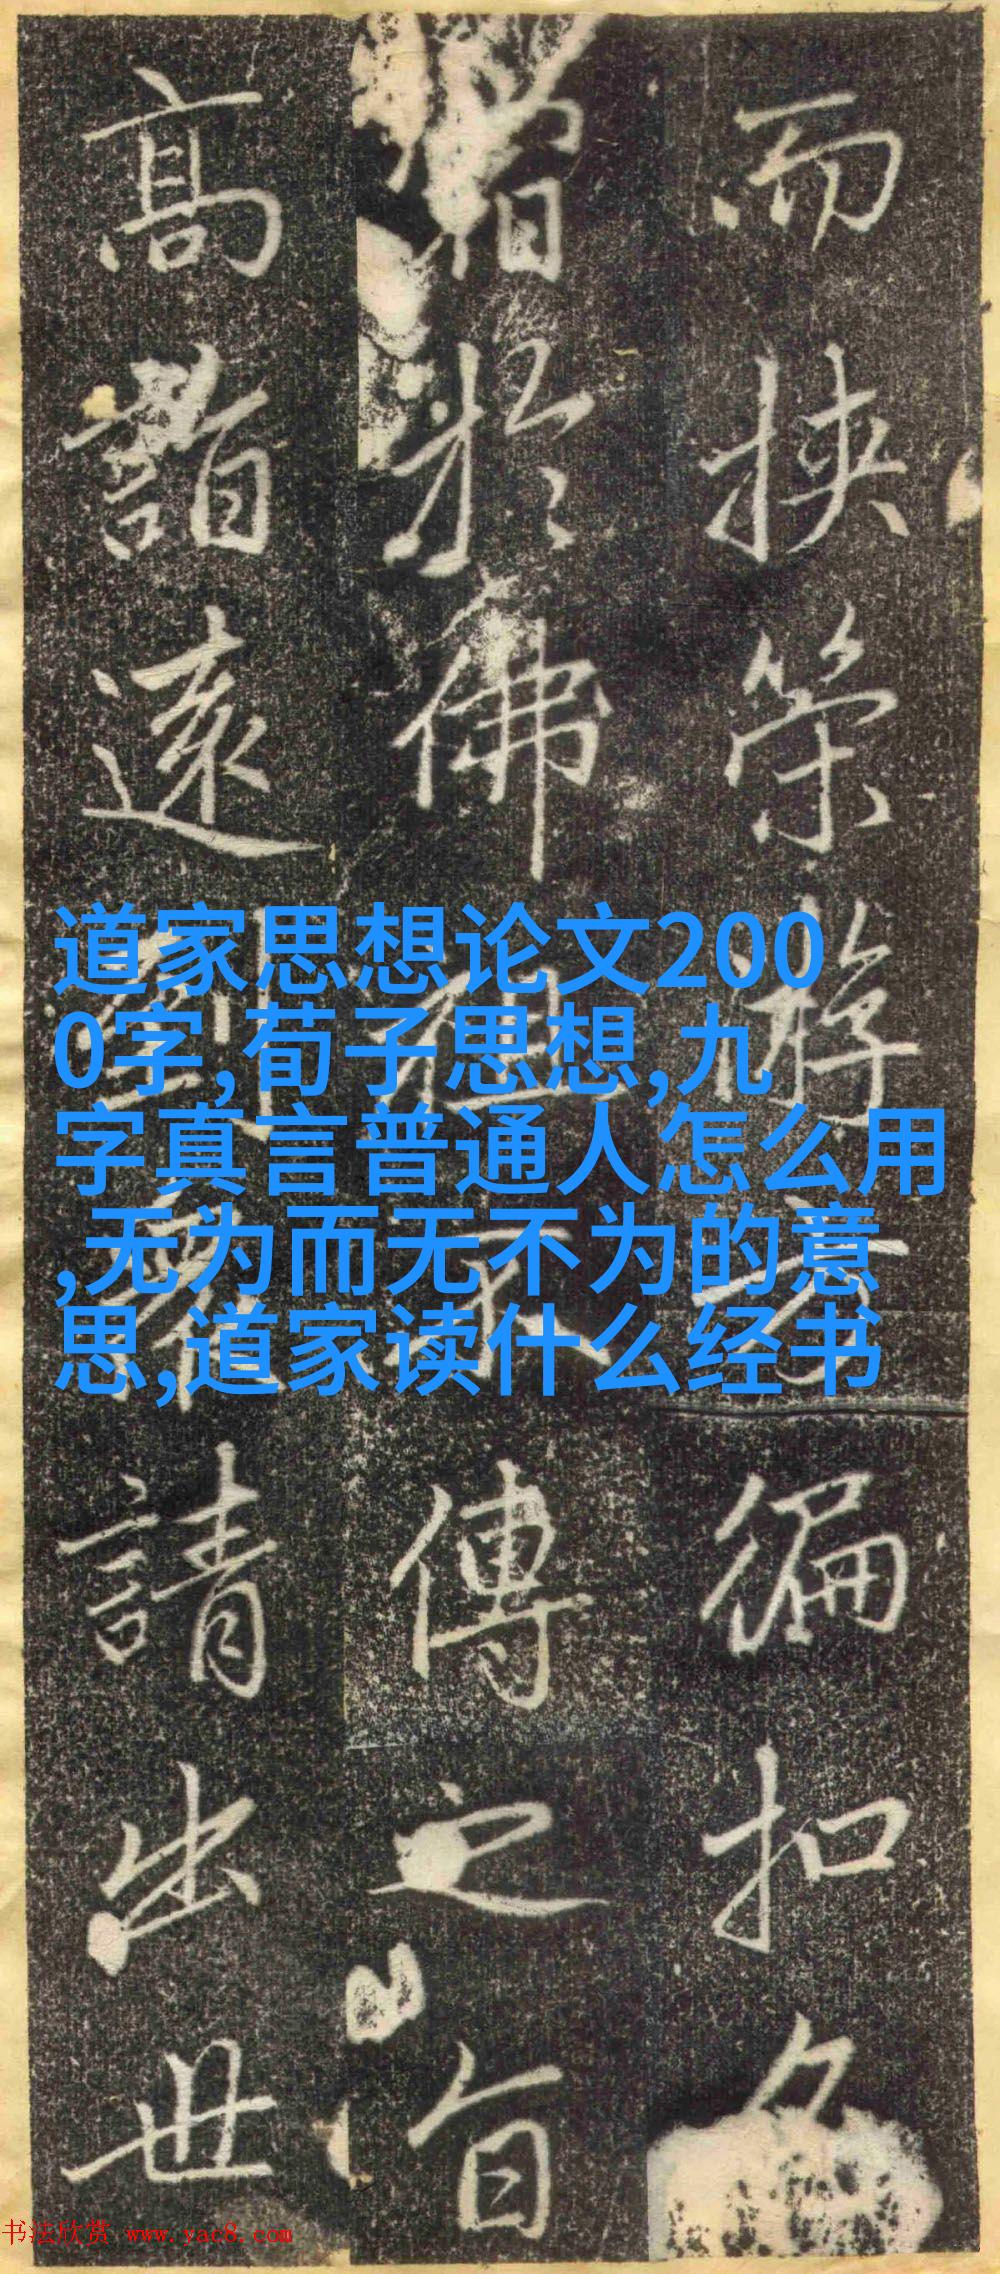 而挾策方徧扣
於佛祖不傳之旨
高詣遠請出世
道家思想论文200
0字,荀子思想,九
字真言普通人怎么用
,无为而无不为的意
思,道家读什么经书
书法欣赏 www.yac8.com